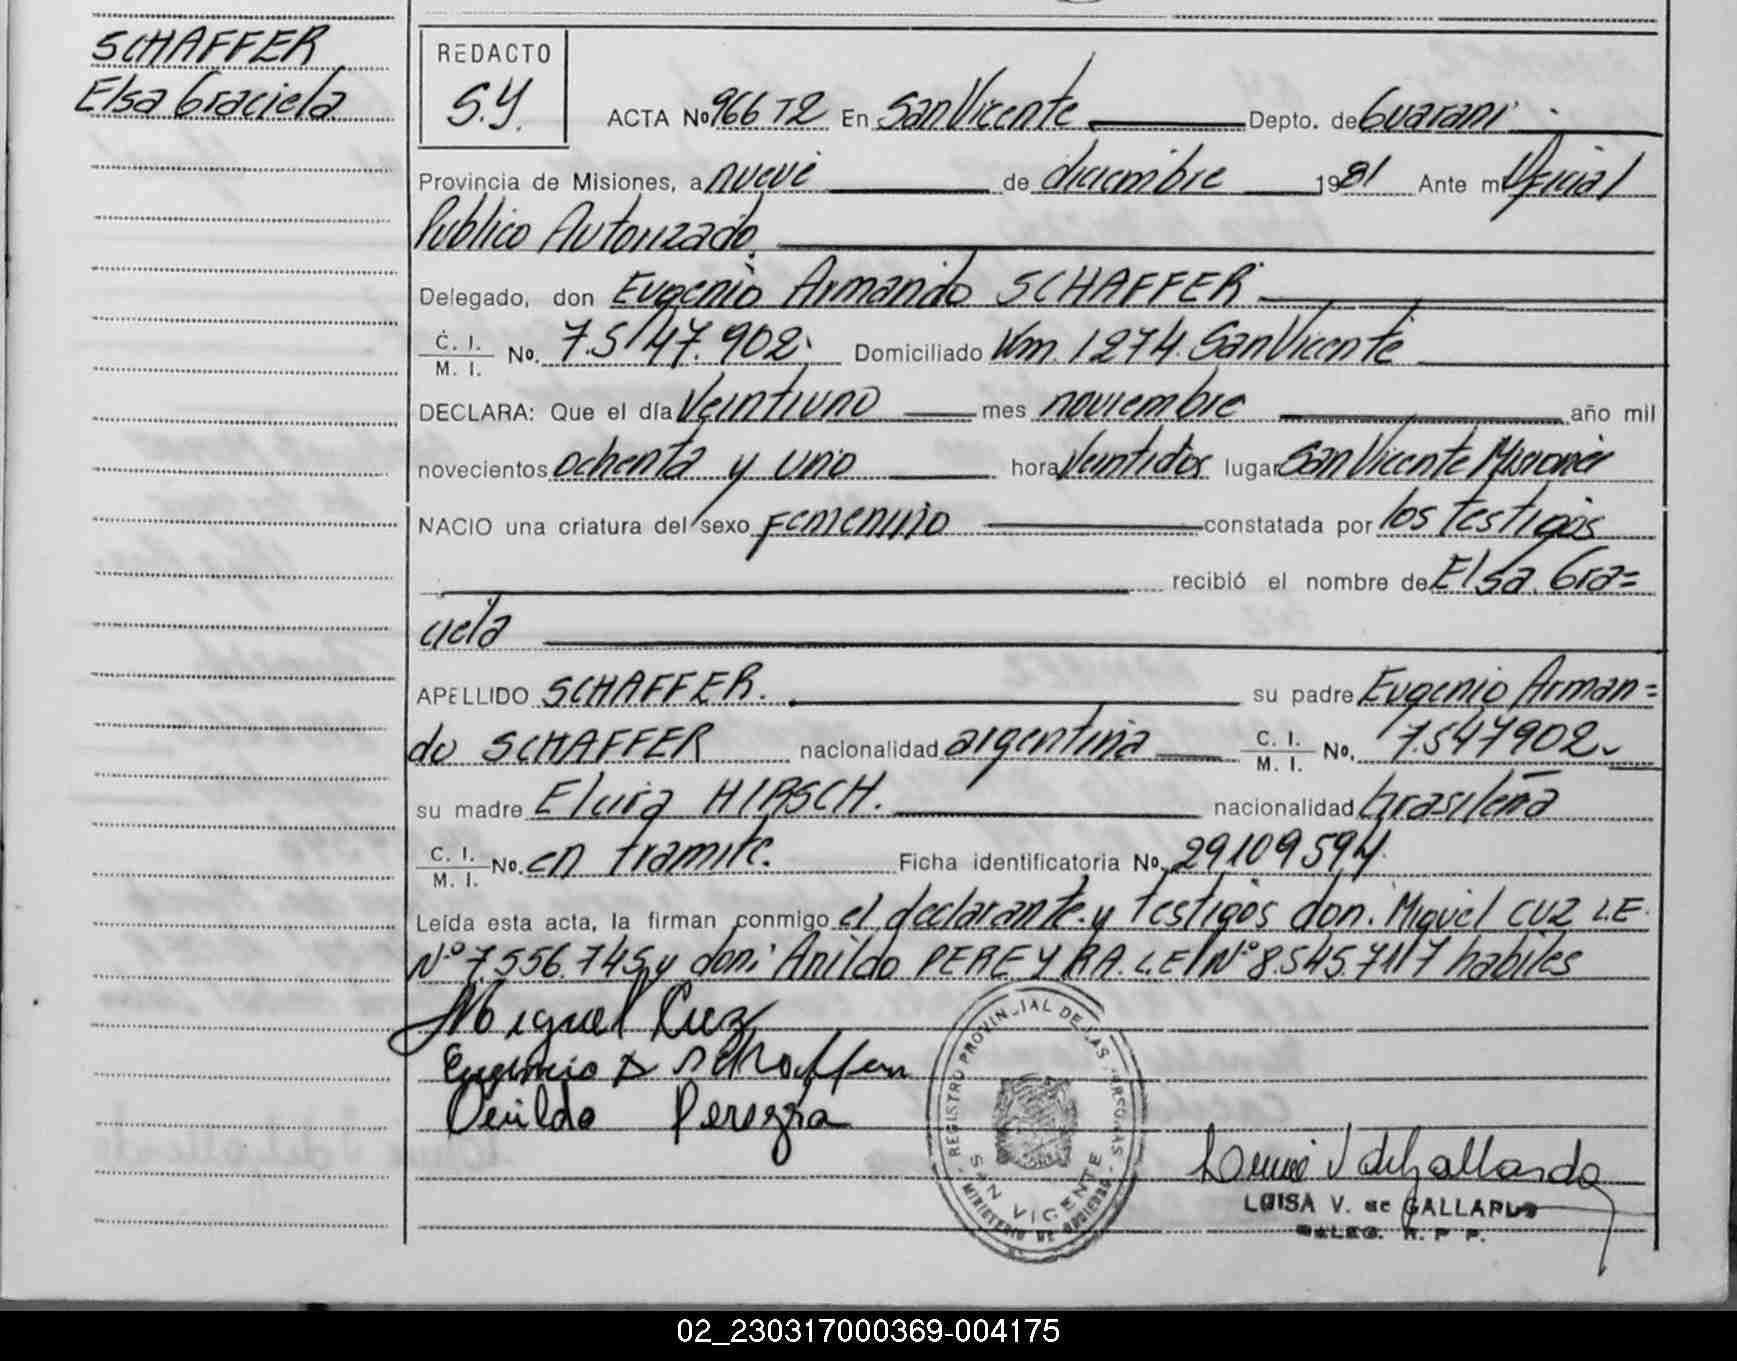 SCHAFFER
Elsa Graciela
REDACTO
S.Y.
ACTA Nº 966 T2 En San Vicente Depto. de Guarani
Provincia de Misiones, a nueve de diciembre 1981 Ante mi Oficial
Publico Autorizado
Delegado, don Eugenio Armando SCHAFFER
C. I. M. I. No. 7.547.902 Domiciliado Km. 1274 San Vicente
DECLARA: Que el día Veintiuno mes noviembre año mil
novecientos ochenta y uno hora Veintidos lugar San Vicente Misiones
NACIO una criatura del sexo femenino constatada por los testigos
recibió el nombre de Elsa Gra=
ciela
APELLIDO SCHAFFER. su padre Eugenio Arman=
do SCHAFFER nacionalidad argentina C. I. M. I. No. 7.547902
su madre Elvira HIRSCH. nacionalidad brasileña
C. I. M. I. No. en tramite. Ficha identificatoria No. 29109594
Leída esta acta, la firman conmigo el declarante y testigos don. Miguel CUZ L.E.
Nº 7.556.745 y don: Anildo PEREYRA. L.E. Nº 8.545.717 habiles
Miguel Cuz
Eugenio A Schaffer
Pereyra
REGISTRO PROVINCIAL DE LAS PERSONAS
SAN VICENTE
MINISTERIO DE GOBIERNO
LUISA V. de GALLARDO
DELEG. R. P. P.
02_230317000369-004175